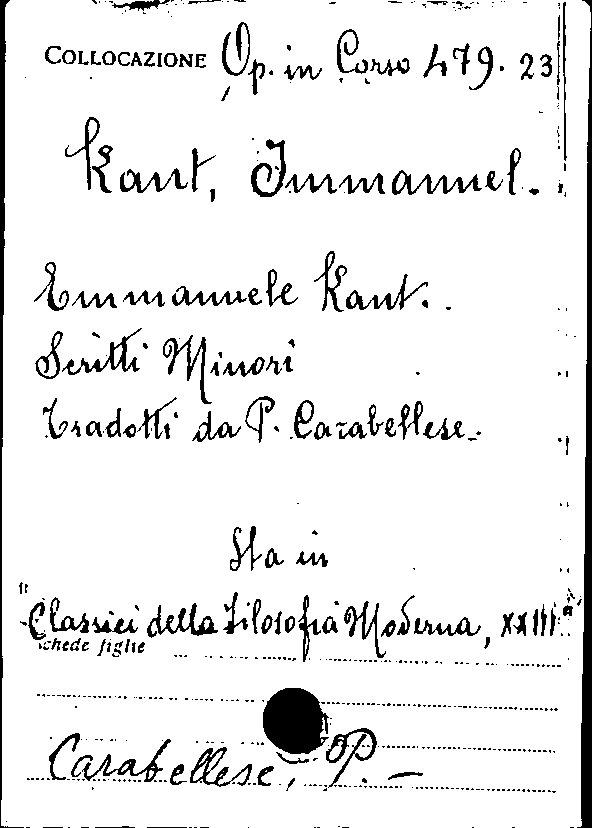 COLLOCAZIONE Op. in Corso 479. 23
Kant, Immanuel.
Emmanuele Kant.
Scritti Minori
Tradotti da P. Carabellese.
Sta in
"Classici della Filosofia Moderna, XXIII"
schede figlie
Carabellese, P. —